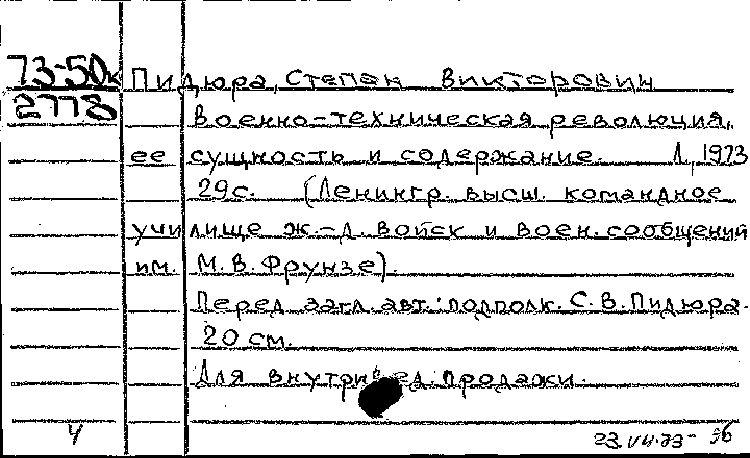 73-50к Пидюра, Степан Викторович
2773
Военно-техническая революция,
ее сущность и содержание. Л, 1973
29с. (Ленингр. высш. командное
училище ж.-д. войск и воен. сообщений
им. М.В. Фрунзе).
Перед загл. авт.: подполк. С.В. Пидюра.
20 см.
Для внутривед. продажи.
4 23.VII.73- 36